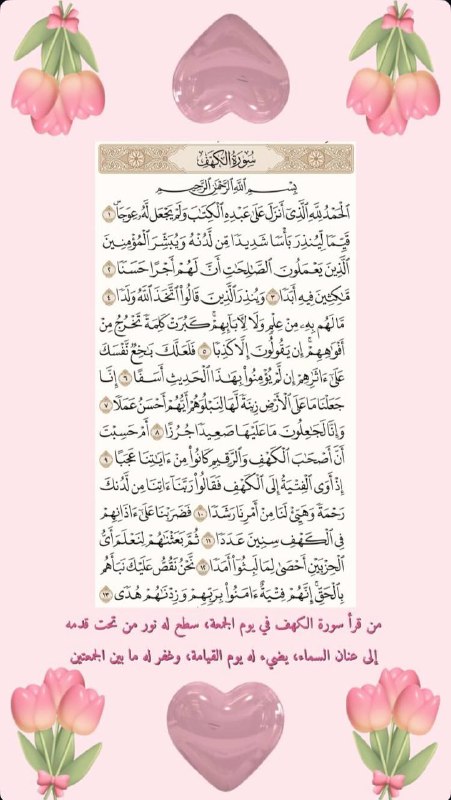 سُورَةُ الكَهْفِ
بِسْمِ اللَّهِ الرَّحْمَٰنِ الرَّحِيمِ
الْحَمْدُ لِلَّهِ الَّذِي أَنزَلَ عَلَىٰ عَبْدِهِ الْكِتَابَ وَلَمْ يَجْعَل لَّهُ عِوَجًا ۜ ١
قَيِّمًا لِّيُنذِرَ بَأْسًا شَدِيدًا مِّن لَّدُنْهُ وَيُبَشِّرَ الْمُؤْمِنِينَ
الَّذِينَ يَعْمَلُونَ الصَّالِحَاتِ أَنَّ لَهُمْ أَجْرًا حَسَنًا ٢
مَّاكِثِينَ فِيهِ أَبَدًا ٣ وَيُنذِرَ الَّذِينَ قَالُوا اتَّخَذَ اللَّهُ وَلَدًا ٤
مَّا لَهُم بِهِ مِنْ عِلْمٍ وَلَا لِآبَائِهِمْ ۚ كَبُرَتْ كَلِمَةً تَخْرُجُ مِنْ
أَفْوَاهِهِمْ ۚ إِن يَقُولُونَ إِلَّا كَذِبًا ٥ فَلَعَلَّكَ بَاخِعٌ نَّفْسَكَ
عَلَىٰ آثَارِهِمْ إِن لَّمْ يُؤْمِنُوا بِهَٰذَا الْحَدِيثِ أَسَفًا ٦ إِنَّا
جَعَلْنَا مَا عَلَى الْأَرْضِ زِينَةً لَّهَا لِنَبْلُوَهُمْ أَيُّهُمْ أَحْسَنُ عَمَلًا ٧
وَإِنَّا لَجَاعِلُونَ مَا عَلَيْهَا صَعِيدًا جُرُزًا ٨ أَمْ حَسِبْتَ
أَنَّ أَصْحَابَ الْكَهْفِ وَالرَّقِيمِ كَانُوا مِنْ آيَاتِنَا عَجَبًا ٩
إِذْ أَوَى الْفِتْيَةُ إِلَى الْكَهْفِ فَقَالُوا رَبَّنَا آتِنَا مِن لَّدُنكَ
رَحْمَةً وَهَيِّئْ لَنَا مِنْ أَمْرِنَا رَشَدًا ١٠ فَضَرَبْنَا عَلَىٰ آذَانِهِمْ
فِي الْكَهْفِ سِنِينَ عَدَدًا ١١ ثُمَّ بَعَثْنَاهُمْ لِنَعْلَمَ أَيُّ
الْحِزْبَيْنِ أَحْصَىٰ لِمَا لَبِثُوا أَمَدًا ١٢ نَّحْنُ نَقُصُّ عَلَيْكَ نَبَأَهُم
بِالْحَقِّ ۚ إِنَّهُمْ فِتْيَةٌ آمَنُوا بِرَبِّهِمْ وَزِدْنَاهُمْ هُدًى ١٣
من قرأ سورة الكهف في يوم الجمعة، سطع له نور من تحت قدمه
إلى عنان السماء، يضيء له يوم القيامة، وغفر له ما بين الجمعتين